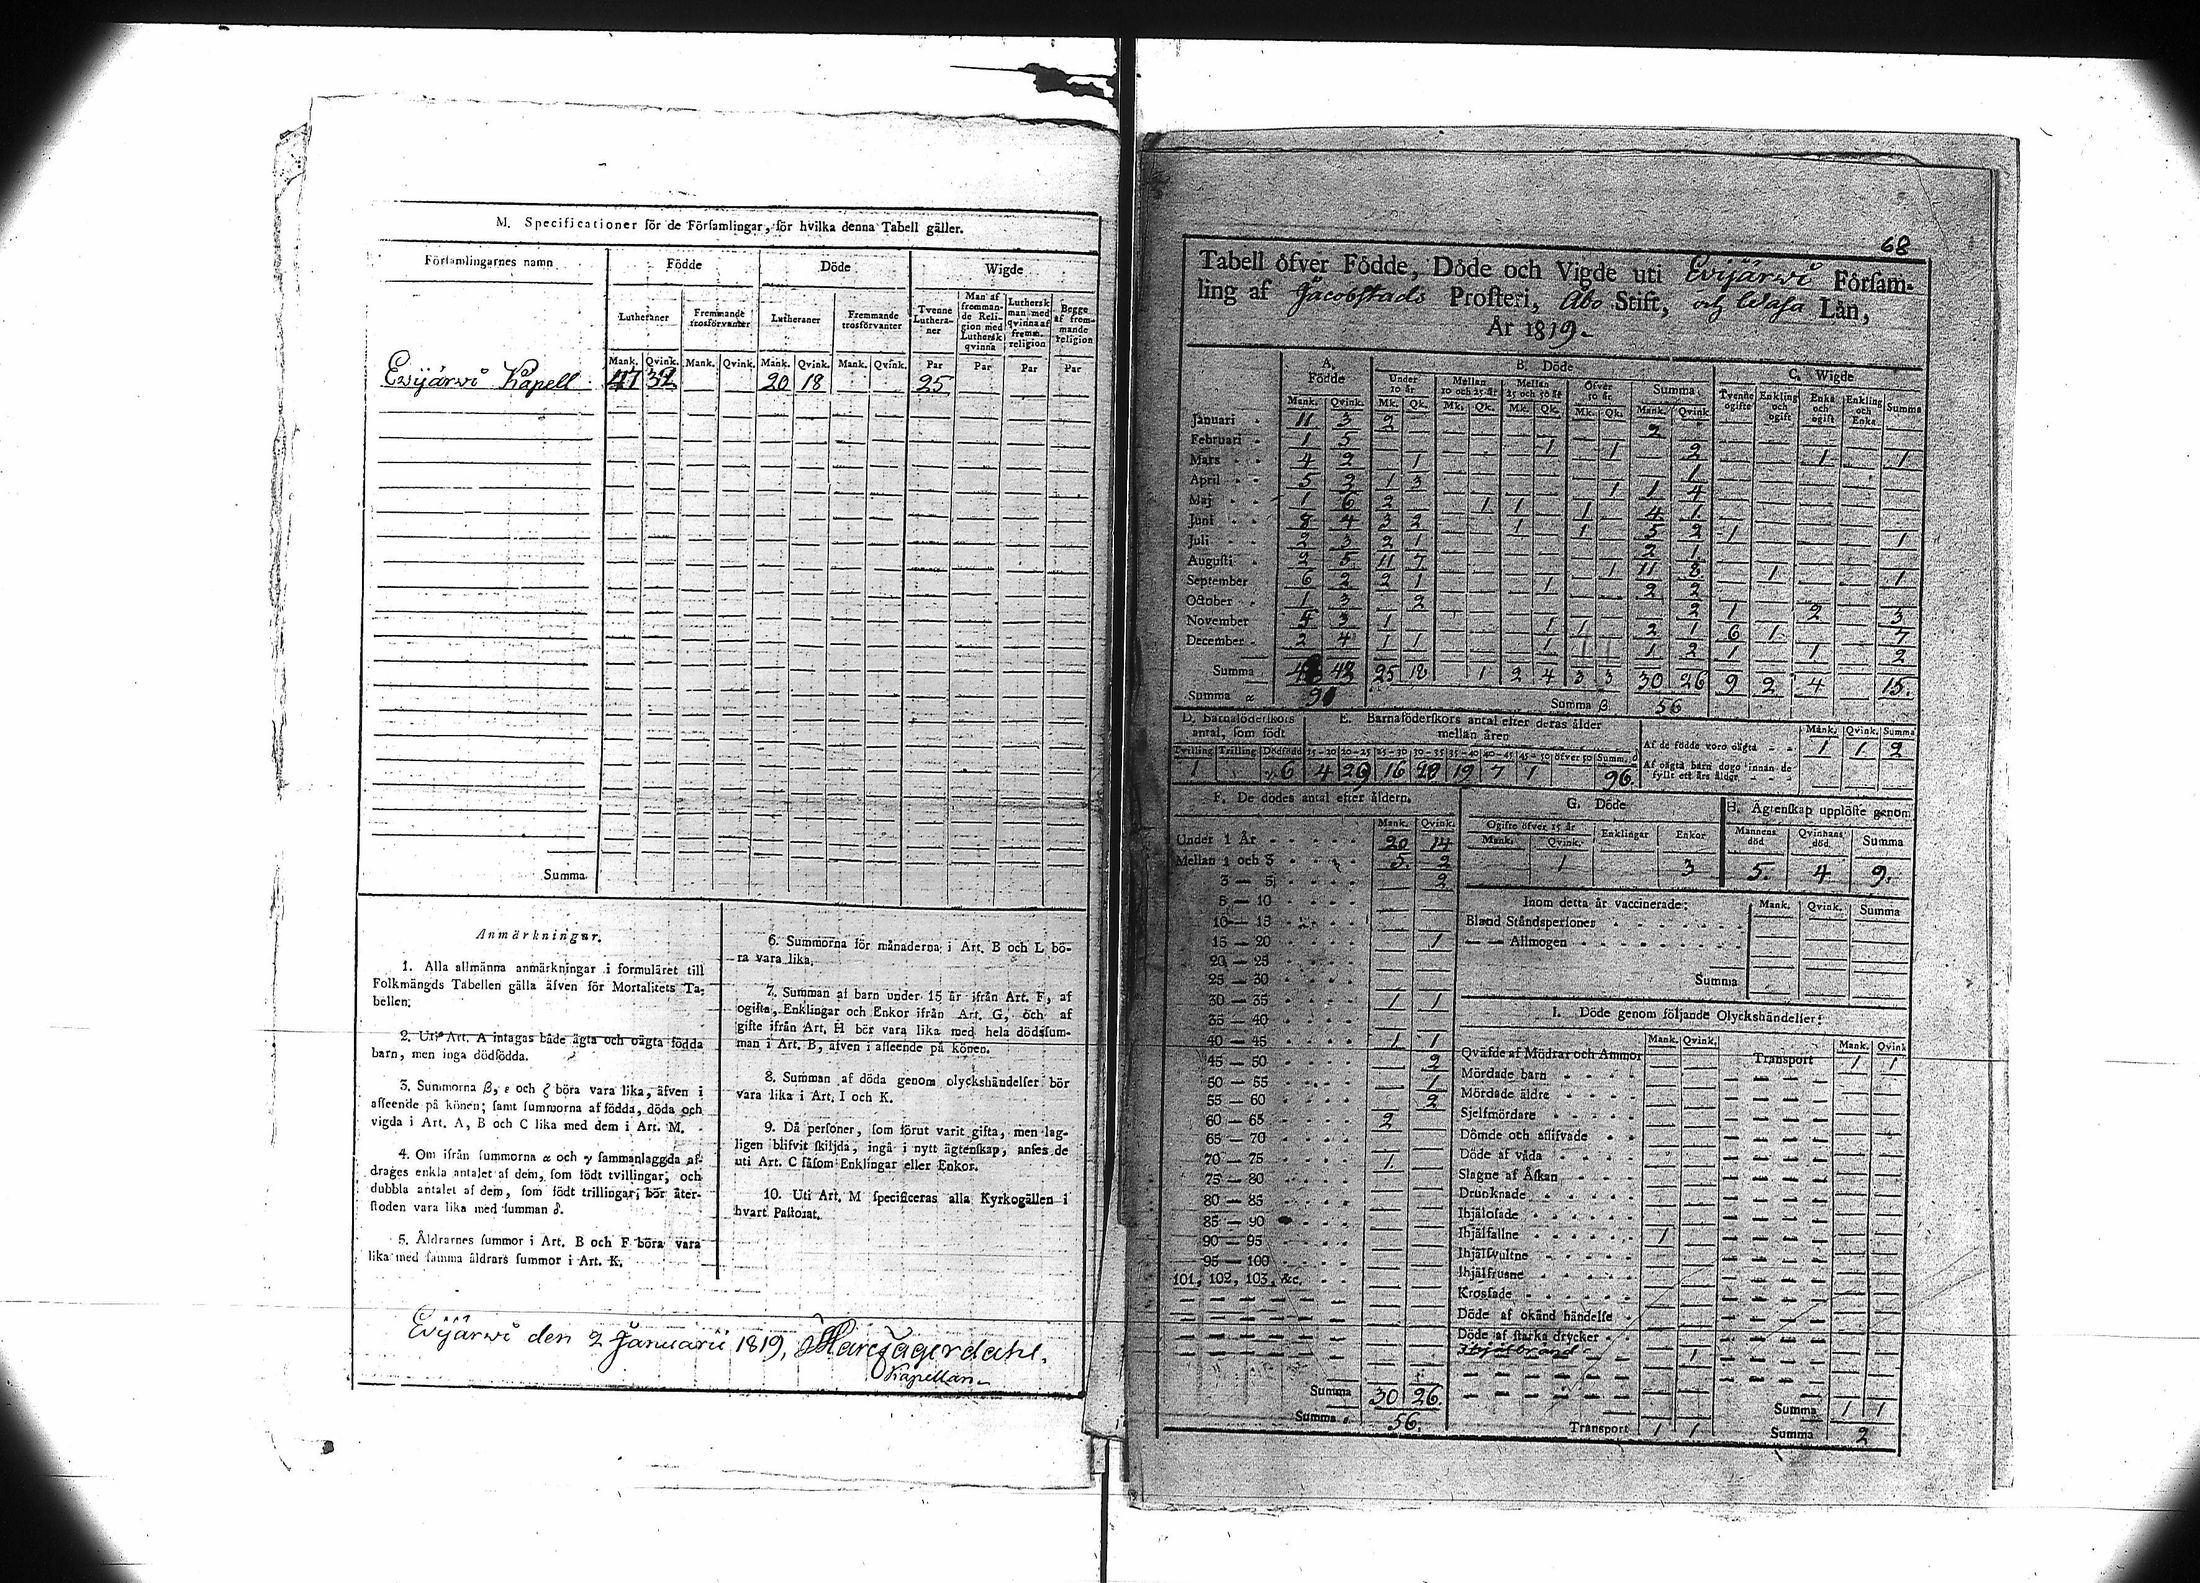 M. Specificationer för de Församlingar, för hvilka denna Tabell gäller.
Församlingarnes namn Födde Döde Wigde
Lutheraner Fremmande trosförvanter Lutheraner Fremmande trosförvanter Tvenne Lutheraner Man af fremmande Religion med Luthersk qvinna Luthersk man med qvinna af fremm. religion Begge af fremmande religion
Mank. Qvink. Mank. Qvink. Mank. Qvink. Mank. Qvink. Par Par Par Par
Ewijärwi Kapell 47 32 20 18 25
Summa
Anmärkningar.
1. Alla allmänna anmärkningar i formuläret till
Folkmängds Tabellen gälla äfven för Mortalitets Ta-
bellen.
2. Uti Art. A intagas både ägta och oägta födda
barn, men inga dödfödda.
3. Summorna β, ε och ζ böra vara lika, äfven i
afseende på könen; samt summorna af födda, döda och
vigda i Art. A, B och C lika med dem i Art. M.
4. Om ifrån summorna α och γ sammanlaggda af-
drages enkla antalet af dem, som födt tvillingar, och
dubbla antalet af dem, som födt trillingar, bör åter-
stoden vara lika med summan δ.
5. Åldrarnes summor i Art. B och F böra vara
lika med samma åldrars summor i Art. K.
6. Summorna för månaderna i Art. B och L bö-
ra vara lika.
7. Summan af barn under 15 år ifrån Art. F, af
ogifta, Enklingar och Enkor ifrån Art. G, och af
gifte ifrån Art. H bör vara lika med hela dödssum-
man i Art. B, äfven i afseende på könen.
8. Summan af döda genom olyckshändelser bör
vara lika i Art. I och K.
9. Då personer, som förut varit gifta, men lag-
ligen blifvit skiljda, ingå i nytt ägtenskap, anses de
uti Art. C såsom Enklingar eller Enkor.
10. Uti Art. M specificeras alla Kyrkogällen i
hvart Pastorat.
Ewijärwi den 2 Januarii 1819,
Kapellan
68
Tabell öfver Födde, Döde och Vigde uti Ewijärwi Försam-
ling af Jacobstads Prosteri, Åbo Stift, och Wasa Län,
År 1819.
A. Födde B. Döde C. Wigde
Under 10 år Mellan 10 och 25 år Mellan 25 och 50 år Öfver 50 år Summa Tvenne ogifte Enkling och ogift Enka och ogift Enkling och Enka Summa
Mank. Qvink. Mk. Qk. Mk. Qk. Mk. Qk. Mk. Qk. Mank. Qvink
Januari 11 3 2 2
Februari 1 5 1 1 2 1 1
Mars 4 2 1 1
April 5 2 1 3 1 1 4
Maj 1 6 2 1 1 1 4 1
Juni 8 4 3 2 1 1 5 2 1 1
Juli 2 3 2 1 2 1
Augusti 2 5 11 7 1 11 8 1 1
September 6 2 2 1 1 2 2
October 1 3 2 2 1 2 3
November 5 3 1 1 1 2 1 6 1 7
December 2 4 1 1 1 1 2 1 1 2
Summa 48 25 18 1 2 4 3 3 30 26 9 2 4 15.
Summa α Summa β 56
D. Barnaföderskors antal, som födt
Tvilling Trilling Dödfödd
1 γ 6
E. Barnaföderskors antal efter deras ålder mellan åren
15-20 20-25 25-30 30-35 35-40 40-45 45-50 öfver 50 Summ. δ
4 16 19 7 1 96.
Mank. Qvink. Summa
Af de födde voro oägta 1 1 2
Af oägta barn dogo innan de fyllt ett års ålder
F. De dödes antal efter åldern.
Mank. Qvink.
Under 1 År 20 14
Mellan 1 och 3 5. 2
3 — 5 2
5 — 10
10 — 15
15 — 20 1
20 — 25
25 — 30
30 — 35 1 1
35 — 40
40 — 45 1 1
45 — 50 2
50 — 55 1
55 — 60 2
60 — 65 2
65 — 70
70 — 75 1.
75 — 80
80 — 85
85 — 90
90 — 95
95 — 100
101, 102, 103, &c.
Summa 30 26.
Summa ε 56.
G. Döde
Ogifte öfver 15 år Enklingar Enkor
Mank. Qvink.
1 3
H. Ägtenskap upplöste genom
Mannens död Qvinnans död Summa
5. 4 9.
Inom detta år vaccinerade: Mank. Qvink. Summa
Bland Ståndspersoner
— — Allmogen
Summa
I. Döde genom följande Olyckshändelser:
Mank. Qvink. Mank. Qvink
Qväfde af Mödrar och Ammor Transport 1 1
Mördade barn
Mördade äldre
Sjelfmördare
Dömde och aflifvade
Döde af våda
Slagne af Åskan
Drunknade
Ihjälosade
Ihjälfallne 1
Ihjälsvultne
Ihjälfrusne
Krossade
Döde af okänd händelse
Döde af starka drycker
Ihjälbränd 1
Summa 1 1
Transport 1 1 Summa 2